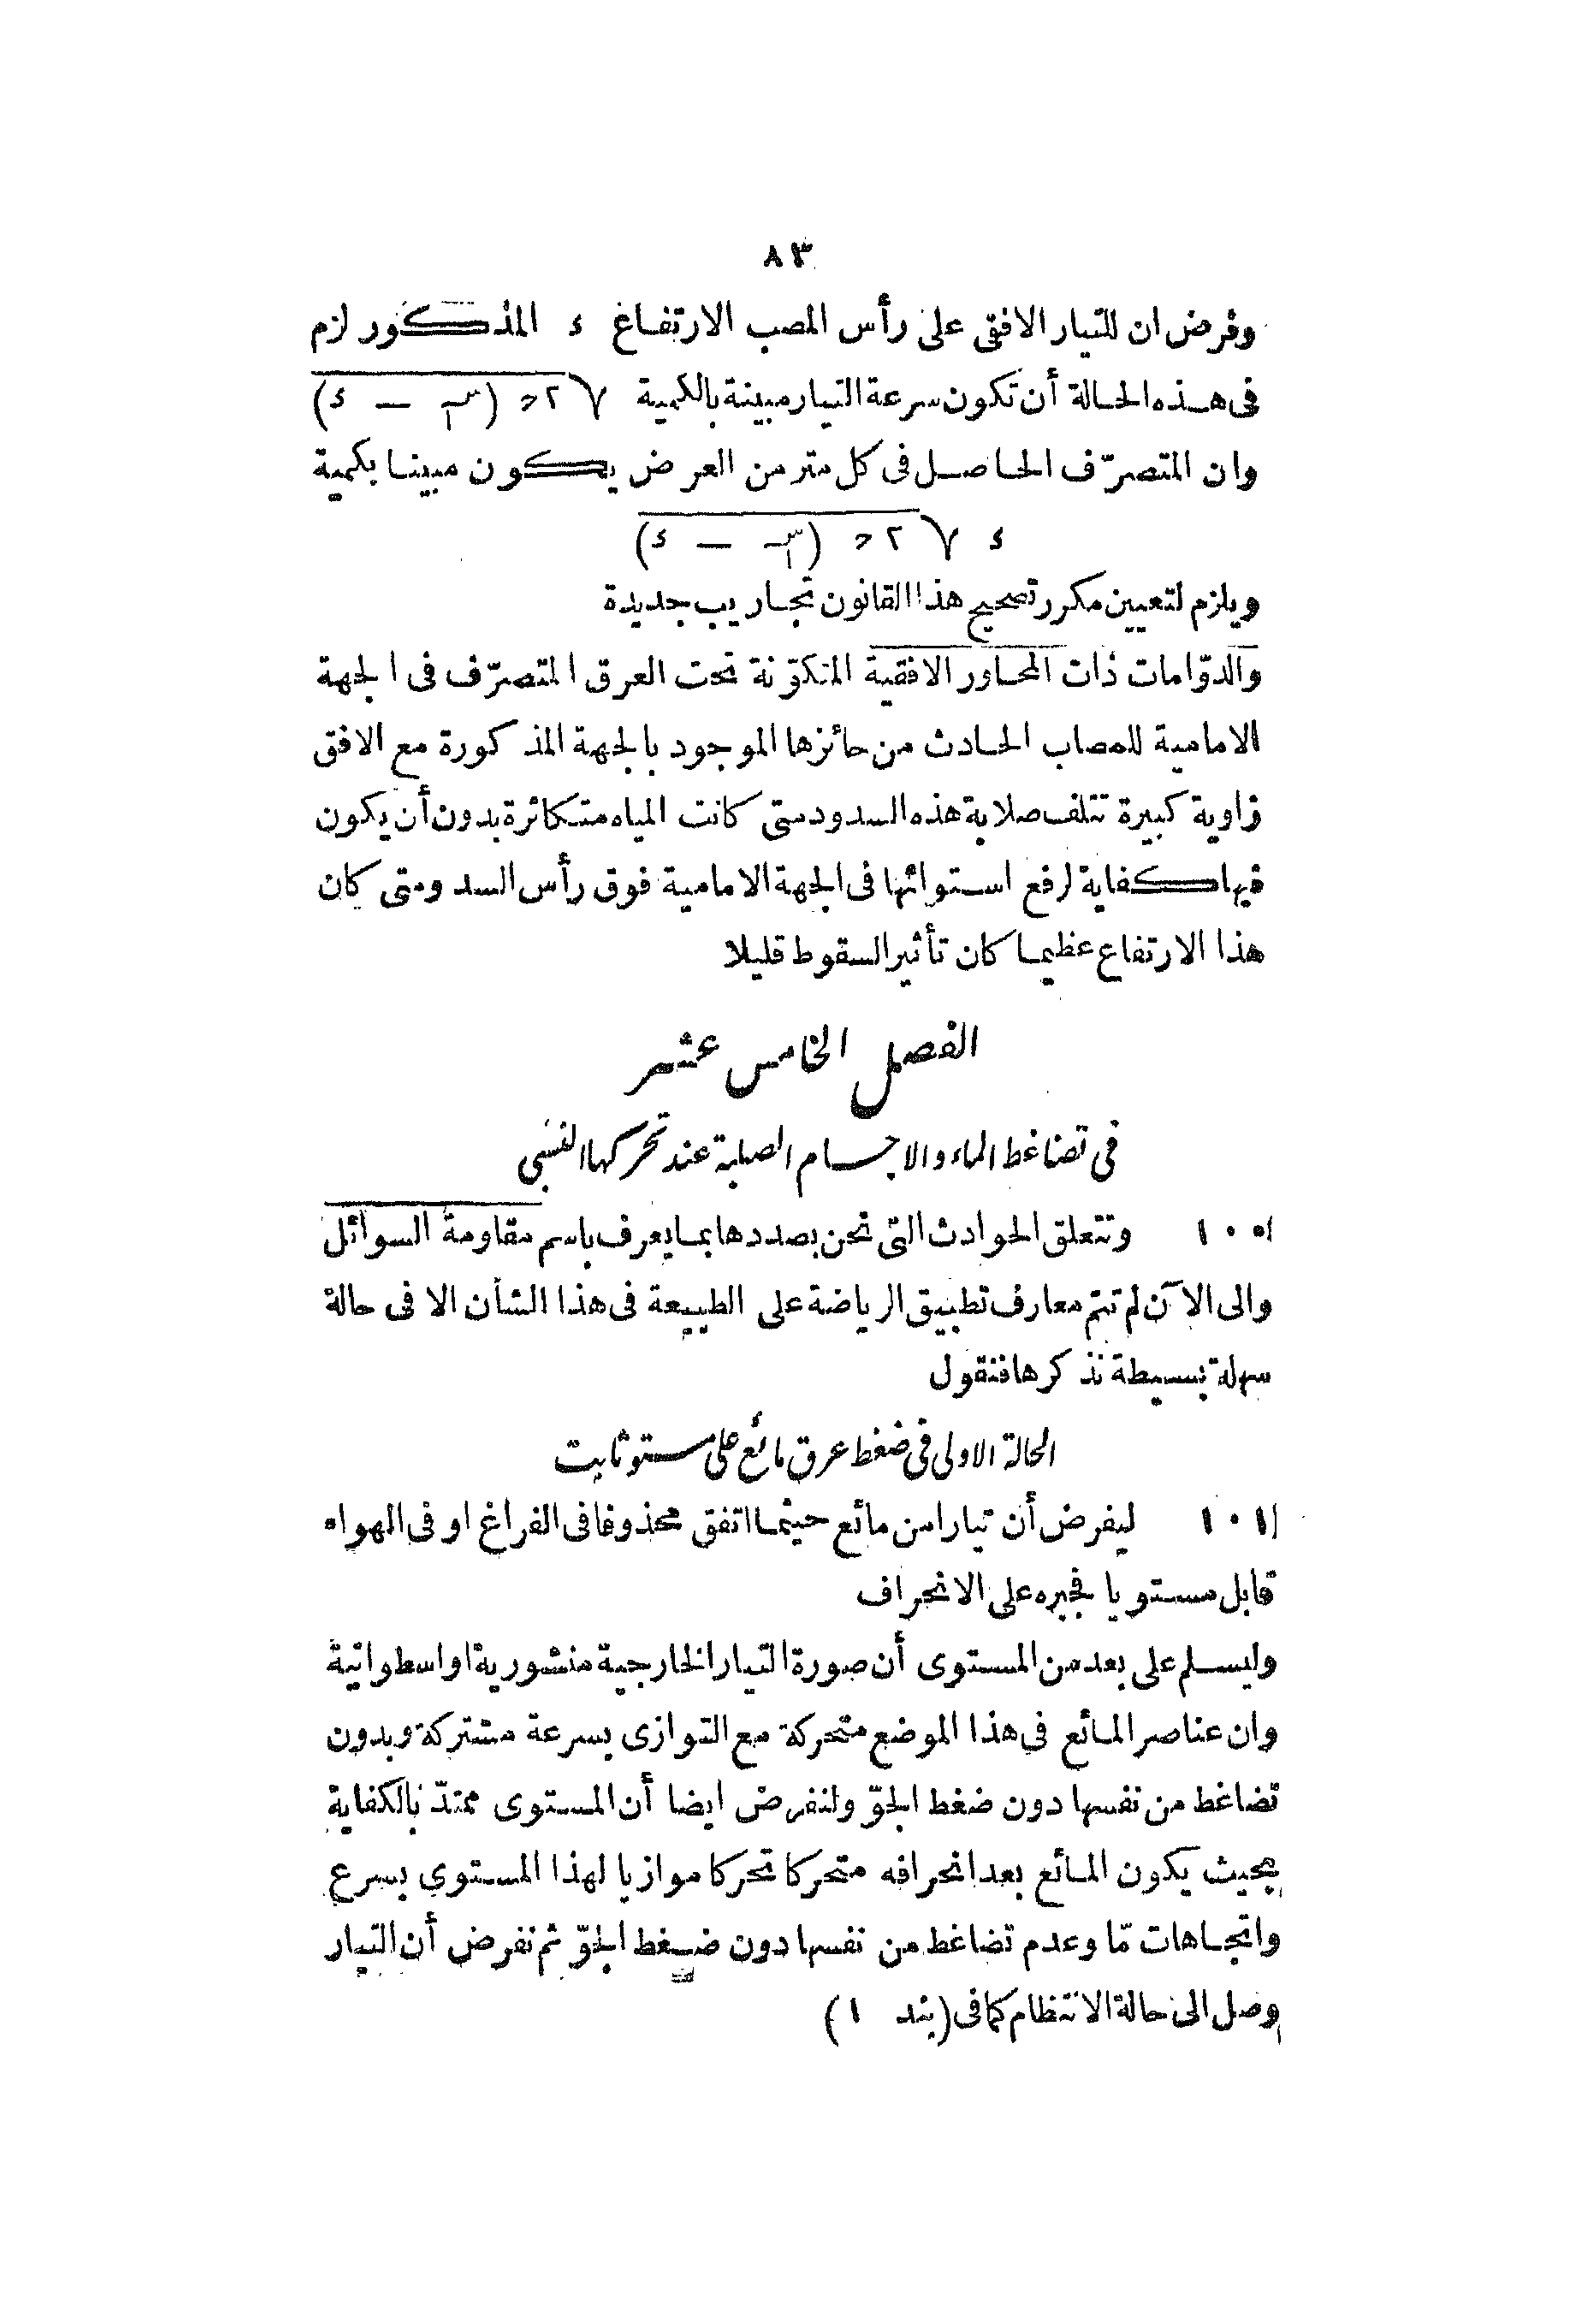 ٨٣
وفرض ان للتيار الافقى على رأس المصب الارتفاغ ء المذكور لزم
فى هذه الحالة أن تكون سرعة التيار مبينة بالكمية √٢ح (سَـ — ء)
وان المتصرّف الحاصل فى كل متر من العرض يكون مبينا بكمية
ء √٢ح (سَـ — ء)
ويلزم لتعيين مكرر تصحيح هذا القانون تجاريب جديدة
والدوّامات ذات المحاور الافقية المتكوّنة تحت العرق المتصرّف فى الجهة
الامامية للمصاب الحادث من حائزها الموجود بالجهة المذكورة مع الافق
زاوية كبيرة تتلف صلابة هذه السدود متى كانت المياه متكاثرة بدون أن يكون
فيها كفاية لرفع استوائها فى الجهة الامامية فوق رأس السد ومتى كان
هذا الارتفاع عظيما كان تأثير السقوط قليلا
الفصل الخامس عشر
فى تضاغط الماء والاجسام الصلبة عند تحركها النسبى
١٠٠ وتتعلق الحوادث التى نحن بصددها بما يعرف باسم مقاومة السوائل
والى الآن لم تتم معارف تطبيق الرياضة على الطبيعة فى هذا الشأن الا فى حالة
سهلة بسيطة نذكرها فنقول
الحالة الاولى فى ضغط عرق مائع على مستو ثابت
١٠١ ليفرض أن تيارا من مائع حيثما اتفق محذوفا فى الفراغ او فى الهواء
قابل مستويا فجبره على الانحراف
وليسلم على بعد من المستوى أن صورة التيار الخارجية منشورية او اسطوانية
وان عناصر المائع فى هذا الموضع متحركة مع التوازى بسرعة مشتركة وبدون
تضاغط من نفسها دون ضغط الجوّ ولنفرض ايضا أن المستوى ممتدّ بالكفاية
بحيث يكون المائع بعد انحرافه متحركا تحركا موازيا لهذا المستوى بسرع
واتجاهات مّا وعدم تضاغط من نفسها دون ضغط الجوّ ثم نفرض أن التيار
وصل الى حالة الانتظام كما فى (بند ١)